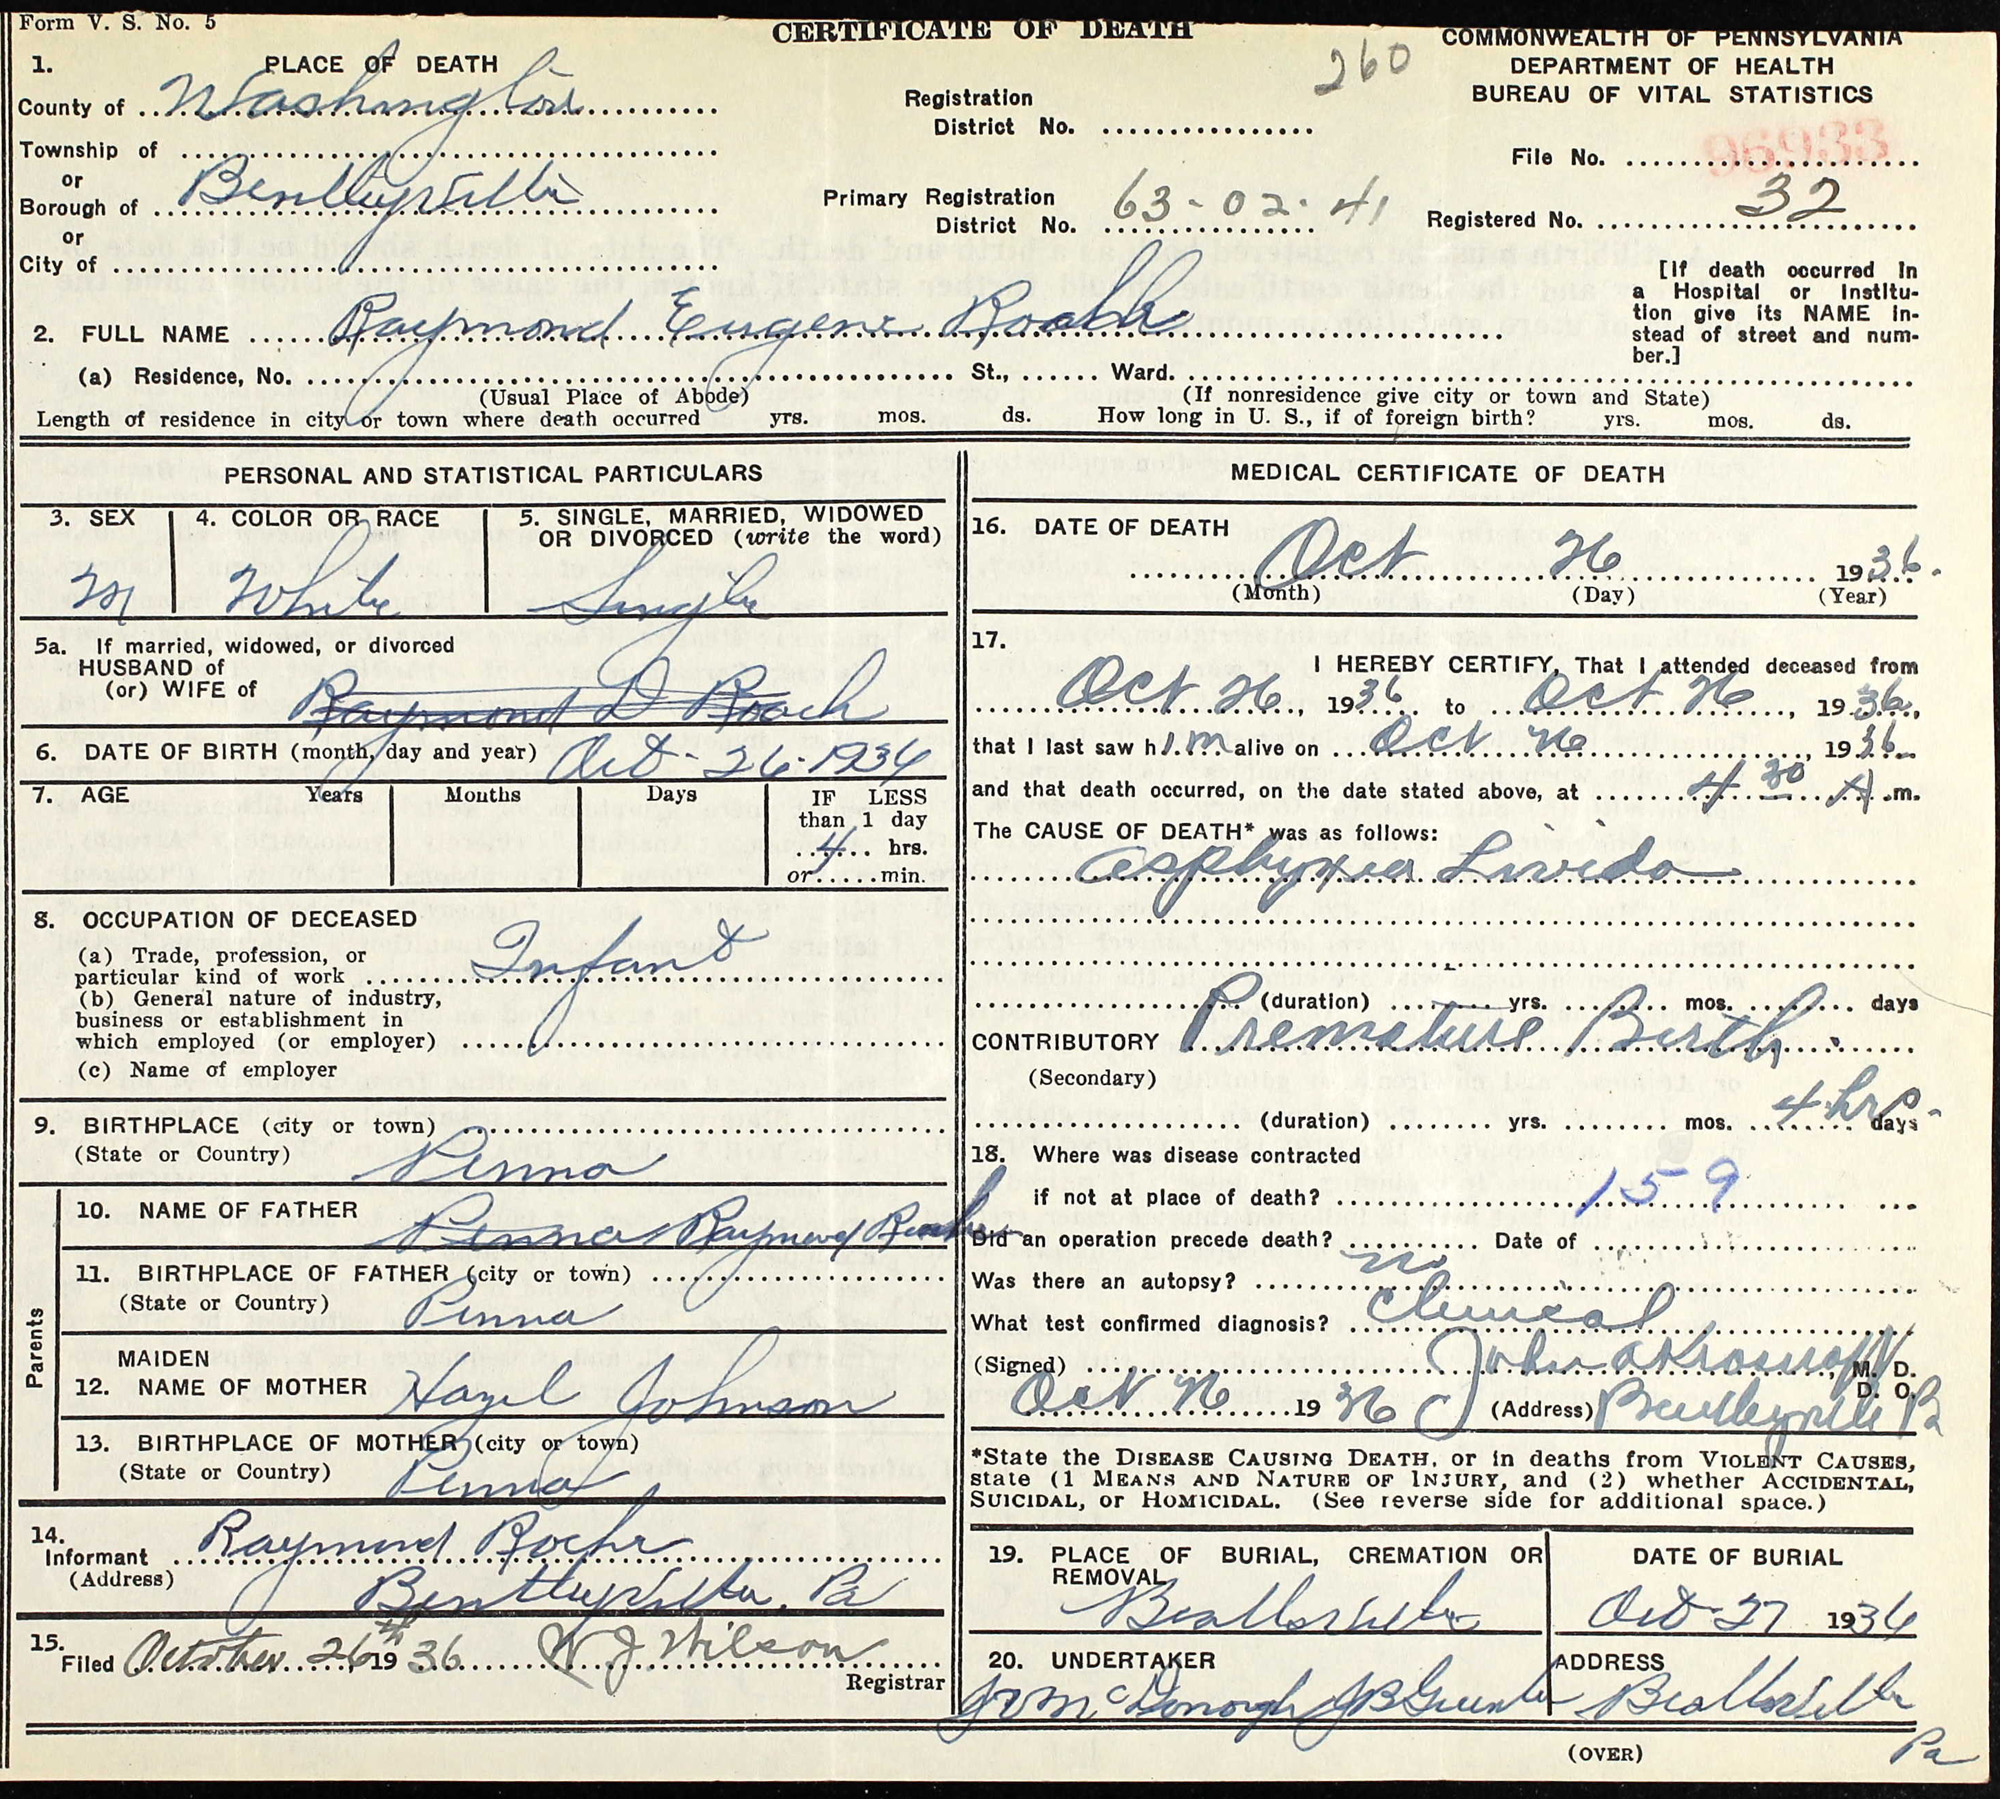 Form V. S. No. 5
CERTIFICATE OF DEATH
COMMONWEALTH OF PENNSYLVANIA
DEPARTMENT OF HEALTH
BUREAU OF VITAL STATISTICS
260
1. PLACE OF DEATH
County of Washington
Township of
or
Borough of Bentleyville
or
City of
Registration
District No.
Primary Registration
District No. 63-02-41
File No. 96933
Registered No. 32
[If death occurred in
a Hospital or Institu-
tion give its NAME in-
stead of street and num-
ber.]
2. FULL NAME Raymond Eugene Roache
(a) Residence, No. St., Ward.
(Usual Place of Abode) (If nonresidence give city or town and State)
Length of residence in city or town where death occurred yrs. mos. ds. How long in U. S., if of foreign birth? yrs. mos. ds.
PERSONAL AND STATISTICAL PARTICULARS
3. SEX
M
4. COLOR OR RACE
White
5. SINGLE, MARRIED, WIDOWED
OR DIVORCED (write the word)
Single
5a. If married, widowed, or divorced
HUSBAND of
(or) WIFE of Raymond D Roach
6. DATE OF BIRTH (month, day and year) Oct-26-1936
7. AGE Years Months Days IF LESS
than 1 day
4 hrs.
or min.
8. OCCUPATION OF DECEASED
(a) Trade, profession, or
particular kind of work Infant
(b) General nature of industry,
business or establishment in
which employed (or employer)
(c) Name of employer
9. BIRTHPLACE (city or town)
(State or Country) Penna
Parents
10. NAME OF FATHER Penna Raymond Roache
11. BIRTHPLACE OF FATHER (city or town)
(State or Country) Penna
MAIDEN
12. NAME OF MOTHER Hazel Johnson
13. BIRTHPLACE OF MOTHER (city or town)
(State or Country) Penna
14.
Informant Raymond Roche
(Address) Bentleyville, Pa
15.
Filed October 26th 1936 W J Wilson
Registrar
MEDICAL CERTIFICATE OF DEATH
16. DATE OF DEATH
Oct 26 1936.
(Month) (Day) (Year)
17.
I HEREBY CERTIFY, That I attended deceased from
Oct 26, 1936 to Oct 26, 1936,
that I last saw him alive on Oct 26 1936
and that death occurred, on the date stated above, at 4 30 A.m.
The CAUSE OF DEATH* was as follows:
Asphyxia Livida
(duration) yrs. mos. days
CONTRIBUTORY Premature Birth
(Secondary)
(duration) yrs. mos. 4 hrs. days
18. Where was disease contracted
if not at place of death? 159
Did an operation precede death? Date of
Was there an autopsy? no
What test confirmed diagnosis? Clinical
(Signed) John A M. D.
D. O.
Oct 26 1936 (Address) Bentleyville Pa
*State the DISEASE CAUSING DEATH, or in deaths from VIOLENT CAUSES,
state (1 MEANS AND NATURE OF INJURY, and (2) whether ACCIDENTAL,
SUICIDAL, or HOMICIDAL. (See reverse side for additional space.)
19. PLACE OF BURIAL, CREMATION OR
REMOVAL
Beallsville
DATE OF BURIAL
Oct-27 1936
20. UNDERTAKER
McDonough
ADDRESS
Beallsville
Pa
(OVER)